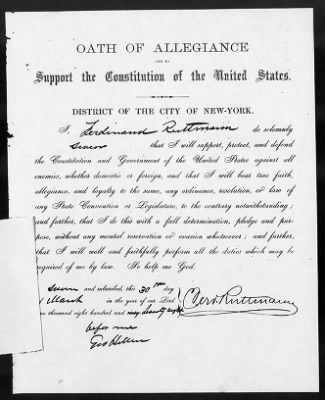 OATH OF ALLEGIANCE
AND TO
Support the Constitution of the United States.
DISTRICT OF THE CITY OF NEW-YORK.
I, Ferdinand Ruttmann do solemnly
swear that I will support, protect, and defend
the Constitution and Government of the United States against all
enemies, whether domestic or foreign, and that I will bear true faith,
allegiance, and loyalty to the same, any ordinance, resolution, or law of
any State Convention or Legislature, to the contrary notwithstanding;
and further, that I do this with a full determination, pledge and pur-
pose, without any mental reservation or evasion whatsoever; and further,
that I will well and faithfully perform all the duties which may be
required of me by law. So help me God.
Sworn and subscribed, this 30th day
March in the year of our Lord
one thousand eight hundred and seventy eight
Ferd. Ruttmann
before me